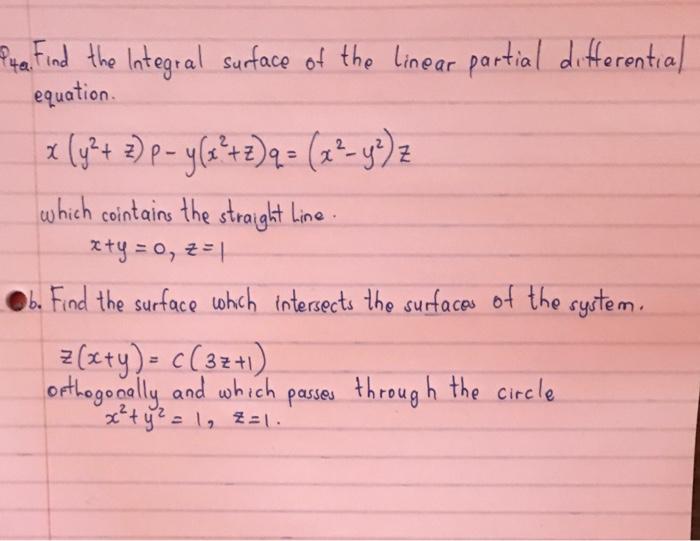 P4a. Find the Integral surface of the linear partial differential
equation.
x (y²+ z) p - y(x²+z)q = (x²-y²)z
which cointains the straight Line.
x+y = 0, z=1
b. Find the surface which intersects the surfaces of the system.
z(x+y) = c(3z+1)
orthogonally and which passes through the circle
x²+y² = 1, z=1.